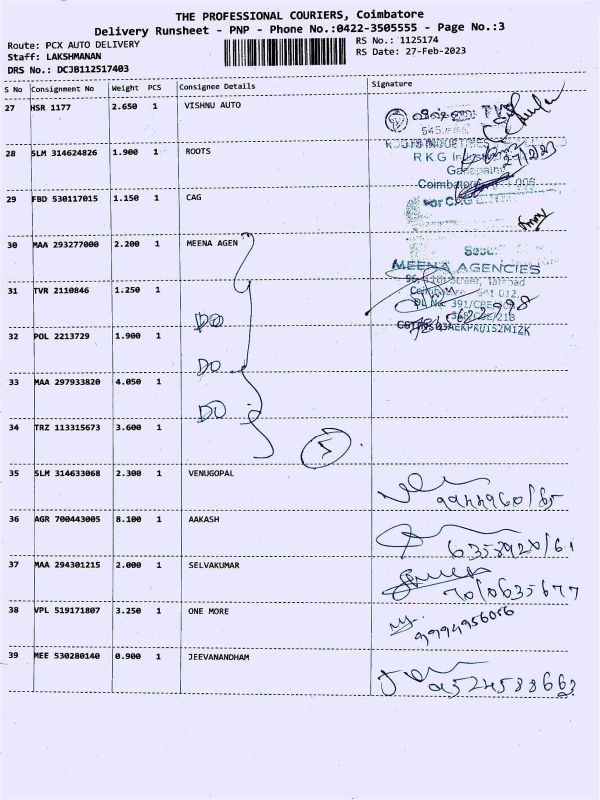 THE PROFESSIONAL COURIERS, Coimbatore
Delivery Runsheet - PNP - Phone No.:0422-3505555 - Page No.:3
Route: PCX AUTO DELIVERY
RS No.: 1125174
Staff: LAKSHMANAN
RS Date: 27-Feb-2023
DRS No.: DCJB112517403
S No Consignment No Weight PCS Consignee Details Signature
27 HSR 1177 2.650 1 VISHNU AUTO
28 SLM 314624826 1.900 1 ROOTS
R K G
Ganapathy
29 FBD 530117015 1.150 1 CAG
Coimbatore
For CAG
30 MAA 293277000 2.200 1 MEENA AGEN
MEENA AGENCIES
31 TVR 2110846 1.250 1
DO
32 POL 2213729 1.900 1
DO
33 MAA 297933820 4.050 1
DO
34 TRZ 113315673 3.600 1
5
35 SLM 314633068 2.300 1 VENUGOPAL
36 AGR 700443005 8.100 1 AAKASH
37 MAA 294301215 2.000 1 SELVAKUMAR
7010635677
38 VPL 519171807 3.250 1 ONE MORE
39 MEE 530280140 0.900 1 JEEVANANDHAM
9524588663